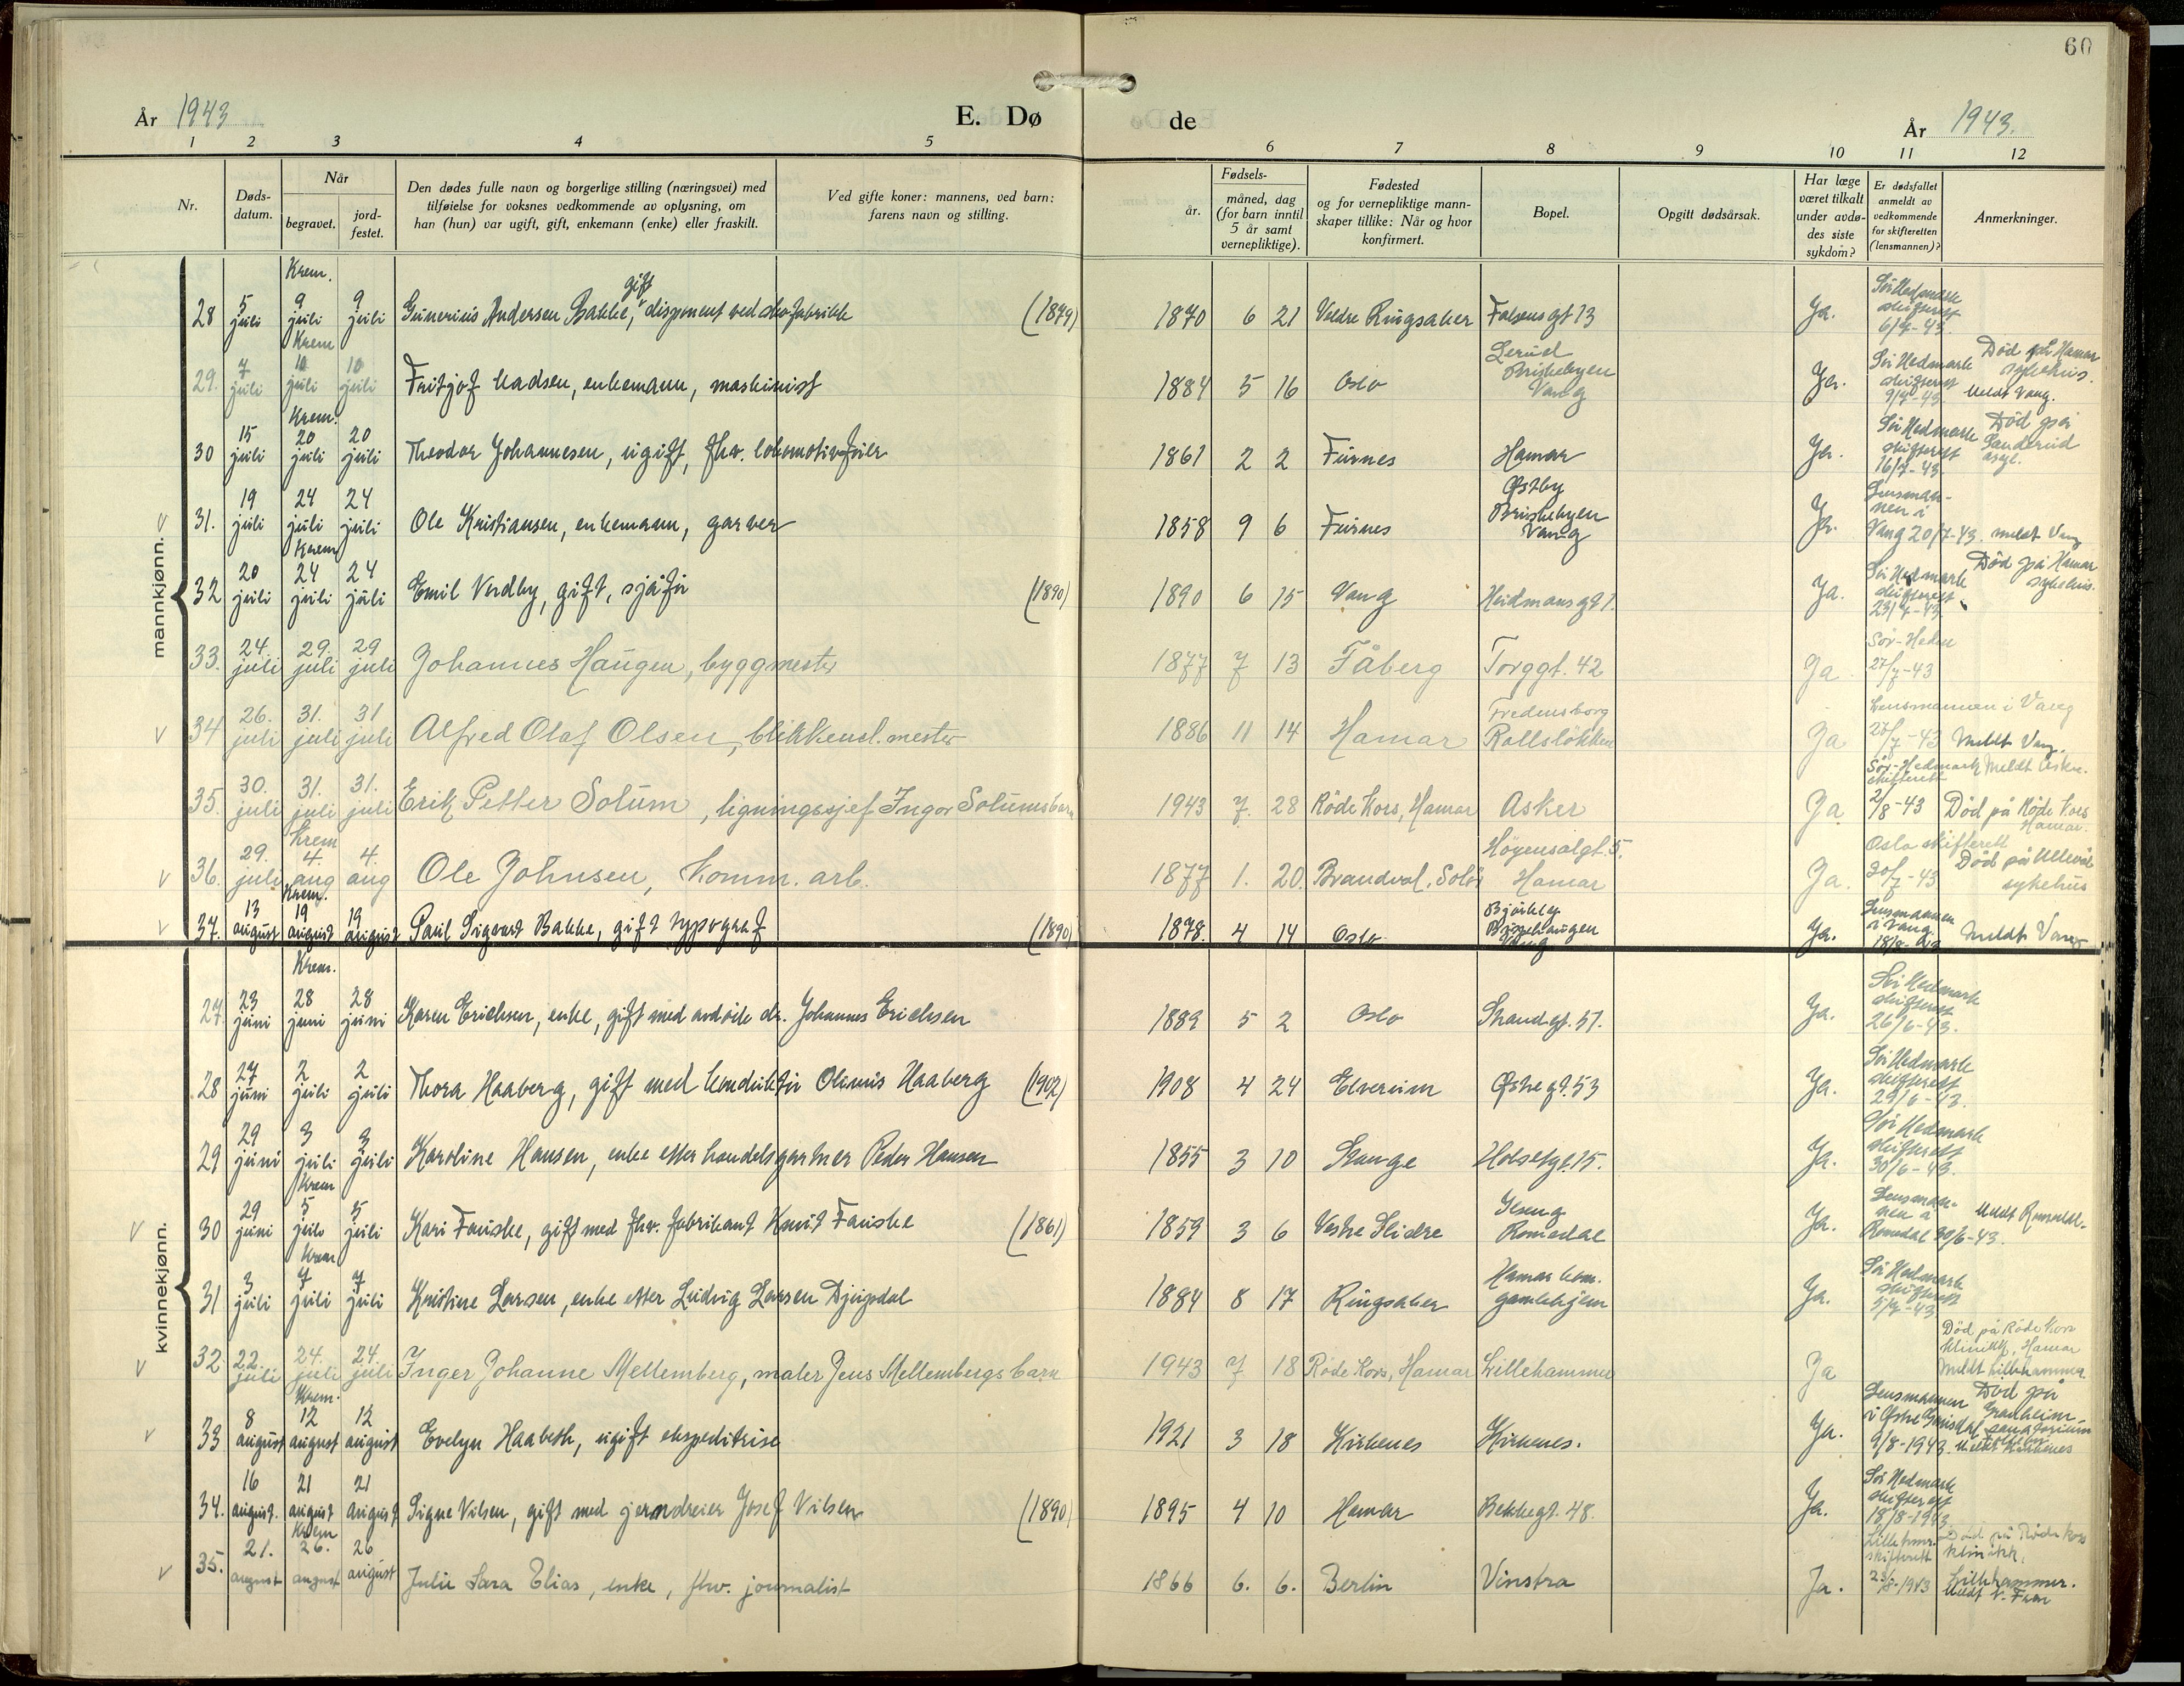 60
År 1943 E. Dø de År 1943.
1 2 3 4 5 6 7 8 9 10 11 12
Nr. Døds-datum. Når begravet. jord-festet. Den dødes fulle navn og borgerlige stilling (næringsvei) med tilføielse for voksnes vedkommende av oplysning, om han (hun) var ugift, gift, enkemann (enke) eller fraskilt. Ved gifte koner: mannens, ved barn: farens navn og stilling. Fødsels- år. måned, dag (for barn inntil 5 år samt vernepliktige). Fødested og for vernepliktige mann-skaper tillike: Når og hvor konfirmert. Bopel. Opgitt dødsårsak. Har læge været tilkalt under avdø-des siste sykdom? Er dødsfallet anmeldt av vedkommende for skifteretten (lensmannen)? Anmerkninger.
mannkjønn.
28 5 juli Krem. 9 juli 9 juli Gunerius Andersen Bakke, gift disponent ved skofabrikk (1879) 1870 6 21 Veldre Ringsaker Falsensgt 13 Ja. Sör Hedmark skifterett 6/7-43.
29. 7 juli Krem 10 juli 10 juli Fritjof Madsen, enkemann, maskinist 1884 5 16 Oslo Lerud Briskebyen Vang Ja. Sör Hedmark skifterett 9/7-43 Död på Hamar sykehus. Meldt Vang.
30 15 juli Krem. 20 juli 20 juli Theodor Johannesen, ugift, fhv. lokomotivförer 1861 2 2 Furnes Hamar Ja. Sör Hedmark skifterett 16/7-43. Död på Sanderud asyl.
v 31. 19 juli 24 juli 24 juli Ole Kristiansen, enkemann, garver 1858 9 6 Furnes Østby Briskebyen Vang Ja. Lensmannen i Vang 20/7-43. meldt Vang
32 20 juli Krem 24 juli 24 juli Emil Verdby, gift, sjåför (1890) 1890 6 15 Vang Heidmansgt 1. Ja. Sör Hedmark skifterett 23/7-43. Död på Hamar sykehus.
33. 24. juli 29. juli 29 juli Johannes Haugen, byggmester 1877 7 13 Fåberg Torggt. 42 Ja Sør-Hedm 27/7-43
v 34 26. juli 31. juli 31 juli Alfred Olaf Olsen, blikkensl. mester 1886 11 14 Hamar Fredensborg Rollsløkken Ja Lensmannen i Vang 28/7-43 Meldt Vang.
35. 30. juli 31. juli 31. juli Erik Petter Solum, ligningssjef Ingor Solums barn 1943 7. 28 Røde Kors, Hamar Asker Ja Sør-Hedmark skifterett 2/8-43 Meldt Asker. Død på Røde Kors Hamar.
v 36. 29. juli Krem 4. aug 4. aug Ole Johnsen, komm. arb. 1877 1. 20. Brandval, Solør Høyensalgt. 5. Hamar Ja. Oslo skifterett 30/7-43 Død på Ullevål sykehus
v 37. 13 august Krem. 19 august 19 august Paul Sigvart Bakke, gift typograf (1890) 1878. 4 14 Oslo Vang Ja. Lensmannen i Vang 18/8-43 Meldt Vang
kvinnekjønn.
27. 23 juni Krem. 28 juni 28 juni Karen Erichsen, enke, gift med avdöde dr. Johannes Erichsen 1889 5 2 Oslo Strandgt. 57. Ja. Sör Hedmark skifterett 26/6-43.
28 27 juni 2 juli 2 juli Thora Haaberg, gift med konduktör Olinius Haaberg (1902) 1908 4 24 Elverum Østregt. 53 Ja. Sör Hedmark skifterett 29/6-43.
29 29 juni 3 juli 3 juli Karoline Hansen, enke etter handelsgartner Peder Hansen 1855 3 10 Stange Holsetgt. 15. Ja. Sör Hedmark skifterett 30/6-43.
v 30 29 juni Krem 5 juli 5 juli Kari Fauske, gift med fhv. fabrikant Knut Fauske (1861) 1859 3 6 Vestre Slidre Ilseng Romedal Ja. Lensmannen i Romedal 30/6-43. Meldt Romedal.
31 3 juli Krem 7 juli 7 juli Kristine Larsen, enke etter Ludvig Larsen Djupdal 1884 8 17 Ringsaker Hamar kom. gamlehjem Ja. Sör Hedmark skifterett 5/7-43
v 32. 22. juli 24. juli 24. juli Inger Johanne Mellemberg, maler Jens Mellembergs barn 1943 7 18 Røde Kors, Hamar Lillehammer Ja Död på Røde Kors klinikk, Hamar Meldt Lillehammer
v 33 8 august Krem. 12 august 12 august Evelyn Haabeth, ugift ekspeditrise 1921 3 18 Kirkenes Kirkenes. Ja. Lensmannen i Østre Gausdal 9/8-1943. Död på Granheim sanatorium Meldt Kirkenes
34. 16 august. 21 august 21 august Signe Vilsen, gift med jerndreier Josef Vilsen (1890) 1895 4 10 Hamar Bekkegt. 48. Ja. Sör Hedmark skifterett 18/8-1943.
v 35. 21. august Krem 26. august 26 august Julie Sara Elias, enke, fhv. journalist 1866 6. 6. Berlin Vinstra Ja. Lillehmr. skifterett 23/8-1943 Död på Røde Kors klinikk, Lillehammer. Meldt N. Fron